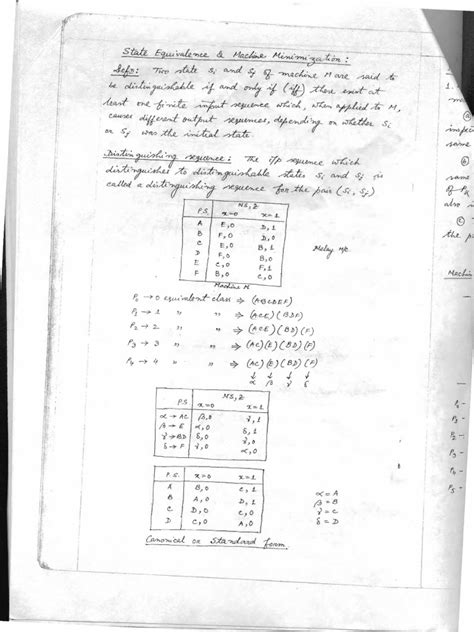 State Equivalence & Machine Minimization :
Defn : Two state Si and Sj of machine M are said to
be distinguishable if and only if (iff) there exist at
least one finite input sequence which, when applied to M,
causes different output sequences, depending on whether Si
or Sj was the initial state.
Distinguishing sequence : The i/p sequence which
distinguishes to distinguishable states Si and Sj is
called a distinguishing sequence for the pair (Si, Sj)
NS, Z
P.S. x=0 x=1
A E,0 D,1
B F,0 D,0
C E,0 B,1
D F,0 B,0
E C,0 F,1
F B,0 C,0
Mealy M/c
Machine M
P0 → 0 equivalent class ⇒ (ABCDEF)
P1 → 1 " " ⇒ (ACE)(BDF)
P2 → 2 " " ⇒ (ACE)(BD)(F)
P3 → 3 " " ⇒ (AC)(E)(BD)(F)
P4 → 4 " " ⇒ (AC)(E)(BD)(F)
↓ ↓ ↓ ↓
α β γ δ
NS, Z
P.S x=0 x=1
α → AC β,0 γ,1
β → E α,0 δ,1
γ → BD δ,0 γ,0
δ → F γ,0 α,0
P.S. x=0 x=1
A B,0 C,1
B A,0 D,1
C D,0 C,0
D C,0 A,0
α = A
β = B
γ = C
δ = D
Canonical or Standard form
1.
same
same
also
the
Machin
P3 -
P4 -
P5 -